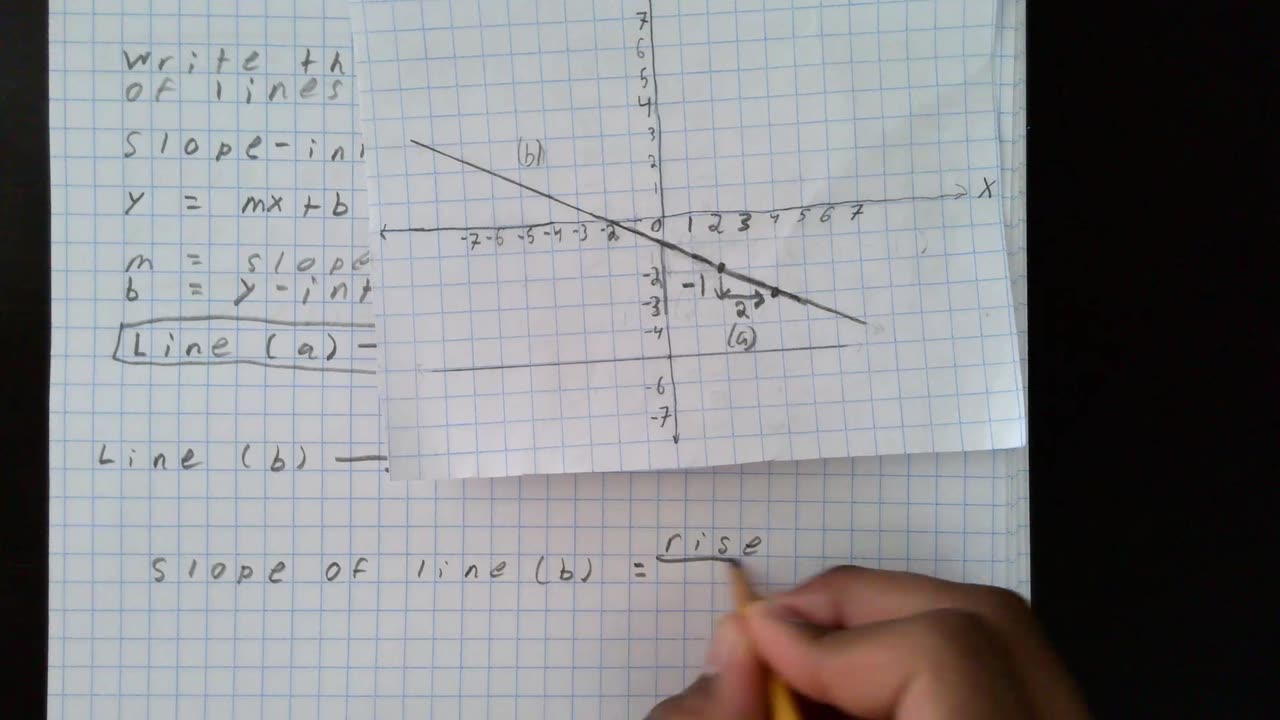 Write th
of lines
Slope-in
y = mx + b
m = slope
b = y-int
Line (a) —
Line (b) —
Slope of line (b) = rise
7
6
5
4
3
2
1
(b)
X
-7 -6 -5 -4 -3 -2 0 1 2 3 4 5 6 7
-2
-1
-3
2
-4
(a)
-6
-7